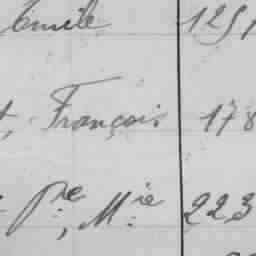 Emile 1251
François 178
Pre, Mie 223